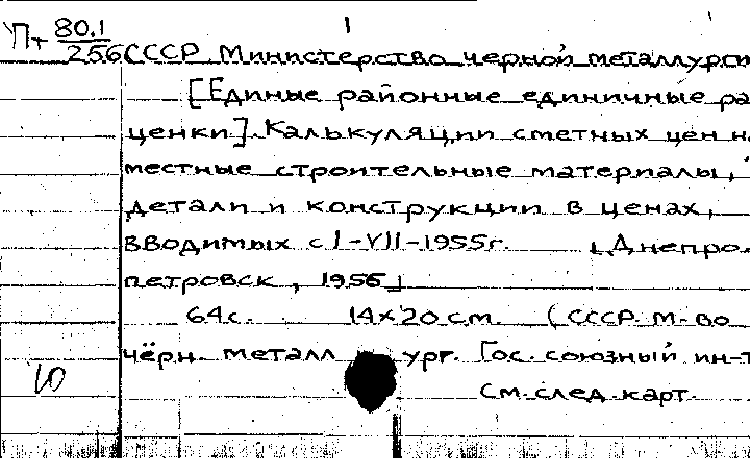 Пт 80.1
256 СССР Министерство черной металлурги
[Единые районные единичные ра
ценки]. Калькуляции сметных цен на
местные строительные материалы,
детали и конструкции в ценах,
вводимых с I-VII-1955г. [Днепро
петровск, 1956]
64с. 14х20 см. (СССР. М-во
чёрн. металлург. Гос. союзный ин-т
10
См. след. карт.